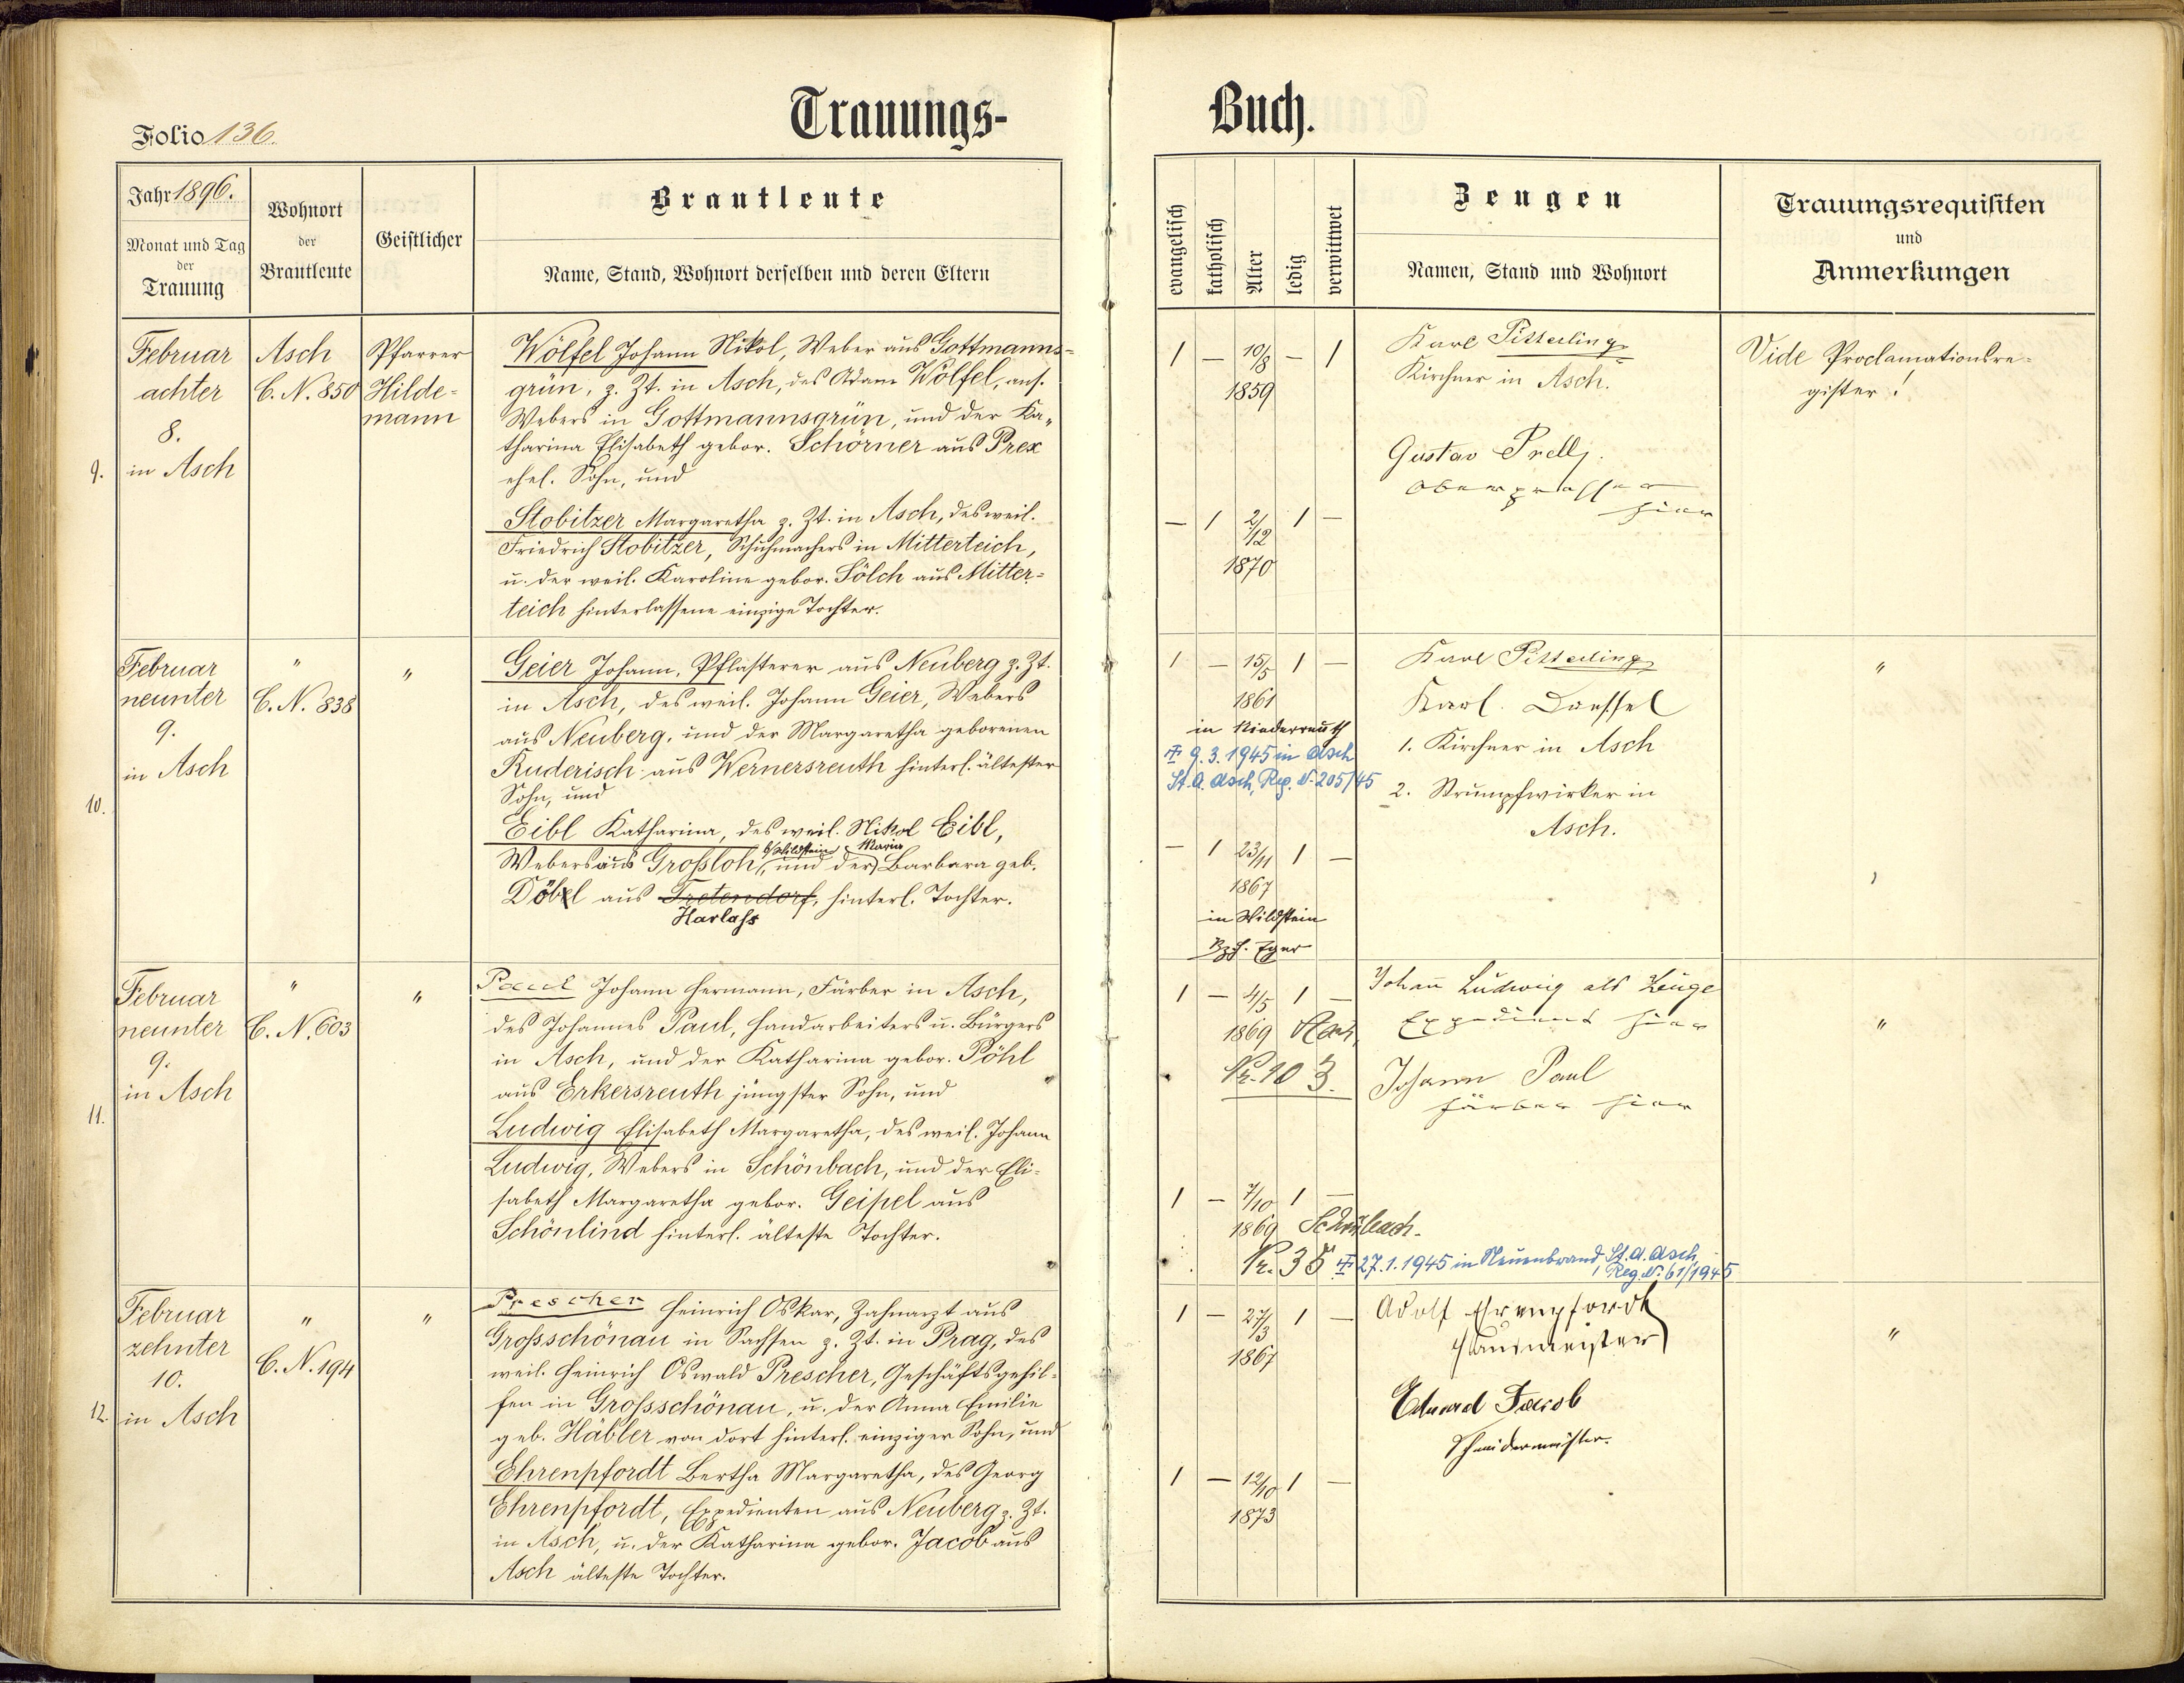 Trauungs-
Buch.
Folio 136.
Jahr 1896.
Monat und Tag
der
Trauung
Wohnort
der
Brautleute
Geistlicher
Brautleute
Name, Stand, Wohnort derselben und deren Eltern
evangelisch
katholisch
Alter
ledig
verwittwet
Zeugen
Namen, Stand und Wohnort
Trauungsrequisiten
und
Anmerkungen
9.
Februar
achter
8.
in Asch
Asch
C. N. 850
Pfarrer
Hilde-
mann
Wölfel Johann Nikol, Weber aus Gottmanns-
grün, z. Zt. in Asch, des Adam Wölfel, ans.
Webers in Gottmannsgrün, und der Ka-
tharina Elisabeth gebor. Schörner aus Prex
ehel. Sohn, und
Stobitzer Margaretha z. Zt. in Asch, des weil.
Friedrich Stobitzer, Schuhmachers in Mitterteich,
u. der weil. Karoline gebor. Sölch aus Mitter-
teich hinterlassene einzige Tochter.
1 — 10/8 — 1
1859
— 1 2/12 1 —
1870
Karl Pitterling
Kirchner in Asch.
Gustav Prell
hier
Vide Proclamationsre-
gister!
10.
Februar
neunter
9.
in Asch
"
C. N. 838
"
Geier Johann, Pflasterer aus Neuberg z. Zt.
in Asch, des weil. Johann Geier, Webers
aus Neuberg, und der Margaretha geborenen
Ruderisch aus Wernersreuth hinterl. ältester
Sohn, und
Eibl Katharina, des weil. Nikol Eibl,
b/Wildstein Maria
Webers aus Grossloh, und der Barbara geb.
Döbl aus Tretendorf, hinterl. Tochter.
Harlass
1 — 15/5 1 —
1861
in Niederreuth
9.3.1945 in Asch
St. A. Asch, Reg. N. 205/45
— 1 23/11 1 —
1867
in Wildstein
Bzh. Eger
Karl Pitterling
Karl
1. Kirchner in Asch
2. Strumpfwirker in
Asch.
"
11.
Februar
neunter
9.
in Asch
"
C. N. 603
"
Paul Johann Hermann, Färber in Asch,
des Johannes Paul, Handarbeiters u. Bürgers
in Asch, und der Katharina gebor. Pöhl
aus Erkersreuth jüngster Sohn, und
Ludwig Elisabeth Margaretha, des weil. Johann
Ludwig, Webers in Schönbach, und der Eli-
sabeth Margaretha gebor. Geipel aus
Schönlind hinterl. älteste Tochter.
1 — 4/5 1 —
1869 Asch
Nr. 103.
1 — 7/10 1 —
1869 Schönbach.
Nr. 35 27.1.1945 in Neuenbrand St. A. Asch,
Reg. N. 61/1945
Johann Ludwig als Zeuge
Expedient hier
Johann Paul
Färber hier
"
12.
Februar
zehnter
10.
in Asch
"
C. N. 194
"
Prescher Heinrich Oskar, Zahnarzt aus
Grossschönau in Sachsen z. Zt. in Prag, des
weil. Heinrich Oswald Prescher, Geschäftsgehil-
fen in Grossschönau, u. der Anna Emilie
geb. Häbler von dort hinterl. einziger Sohn, und
Ehrenpfordt Bertha Margaretha, des Georg
Ehrenpfordt, Expedienten aus Neuberg z. Zt.
in Asch, u. der Katharina gebor. Jacob aus
Asch älteste Tochter.
1 — 27/3 1 —
1867
1 — 12/10 1 —
1873
Adolf Ehrenpfordt
Hausmeister
Eduard Jacob
Schneidermeister.
"